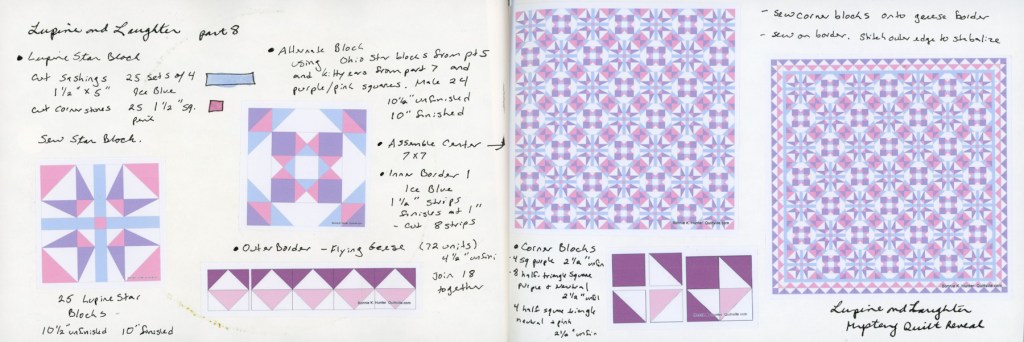 Lupine and Laughter part 8
• Lupine Star Block
Cut Sashings 25 sets of 4
1½" x 5" Ice Blue
Cut Cornerstones 25 1½" sq.
pink
Sew Star Block.
25 Lupine Star
Blocks -
10½" unfinished 10" finished
• Alternate Block
using Ohio Star blocks from pt 5
and kitty ears from part 7 and
purple/pink squares. Make 24
10½" unfinished
10" finished
• Assemble Center →
7x7
• Inner Border 1
Ice Blue
1½" strips
finishes at 1"
- Cut 8 strips
• Outer Border - Flying Geese (72 units)
4½" unfini
Join 18
together
Bonnie K. Hunter Quiltville.com
Bonnie K. Hunter Quiltville.com
• Corner Blocks
- 4 sq purple 2½" unfin
- 8 half-triangle square
purple & Neutral
2½" unfi
4 half square triangle
neutral & pink
2½" unfin
Quiltville.com
- Sew corner blocks onto geese border
- sew on border. Stitch outer edge to stabalize
Bonnie K. Hunter Quiltville.com
Lupine and Laughter
Mystery Quilt Reveal